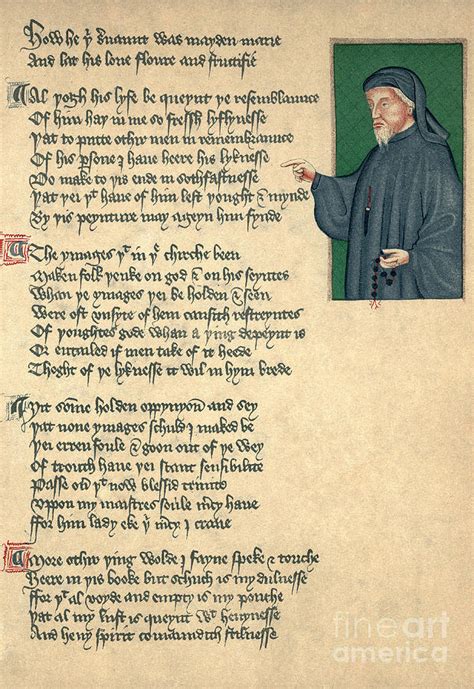 How he þi seruaunt was mayden marie
And lat his loue floure and fructifie
Al þogh his lyfe be queynt þe resemblaunce
Of him haþ in me so fressh lyflynesse
Þat to putte othir men in remembraunce
Of his psone I haue heere his lyknesse
Do make to þis ende in sothfastnesse
Þat þei þt haue of him left þought & mynde
By þis peynture may ageyn him fynde
The ymages þt in þe chirche been
Maken folk þenke on god & on his seyntes
Whan þe ymages þei be holden & seen
Were oft vnsyte of hem causith restreyntes
Of þoughtes gode whan a þing depeynt is
Or entailed if men take of it heede
Thoght of þe lyknesse it wil in hym brede
Yit some holden oppynyon and sey
Þat none ymages schuld I maked be
Þei erren foule & goon out of þe wey
Of trouth haue þei scant sensibilite
Passe ou þt now blessid trinite
Vppon my maistres soule mcy haue
For him lady eke þi mcy I craue
More othir þing wolde I fayne speke & touche
Heere in þis booke but schuch is my dulnesse
For þt al voyde and empty is my pouche
Þat al my lust is queynt wt heuynesse
And heuy spirit comaundith stilnesse
fineart
america